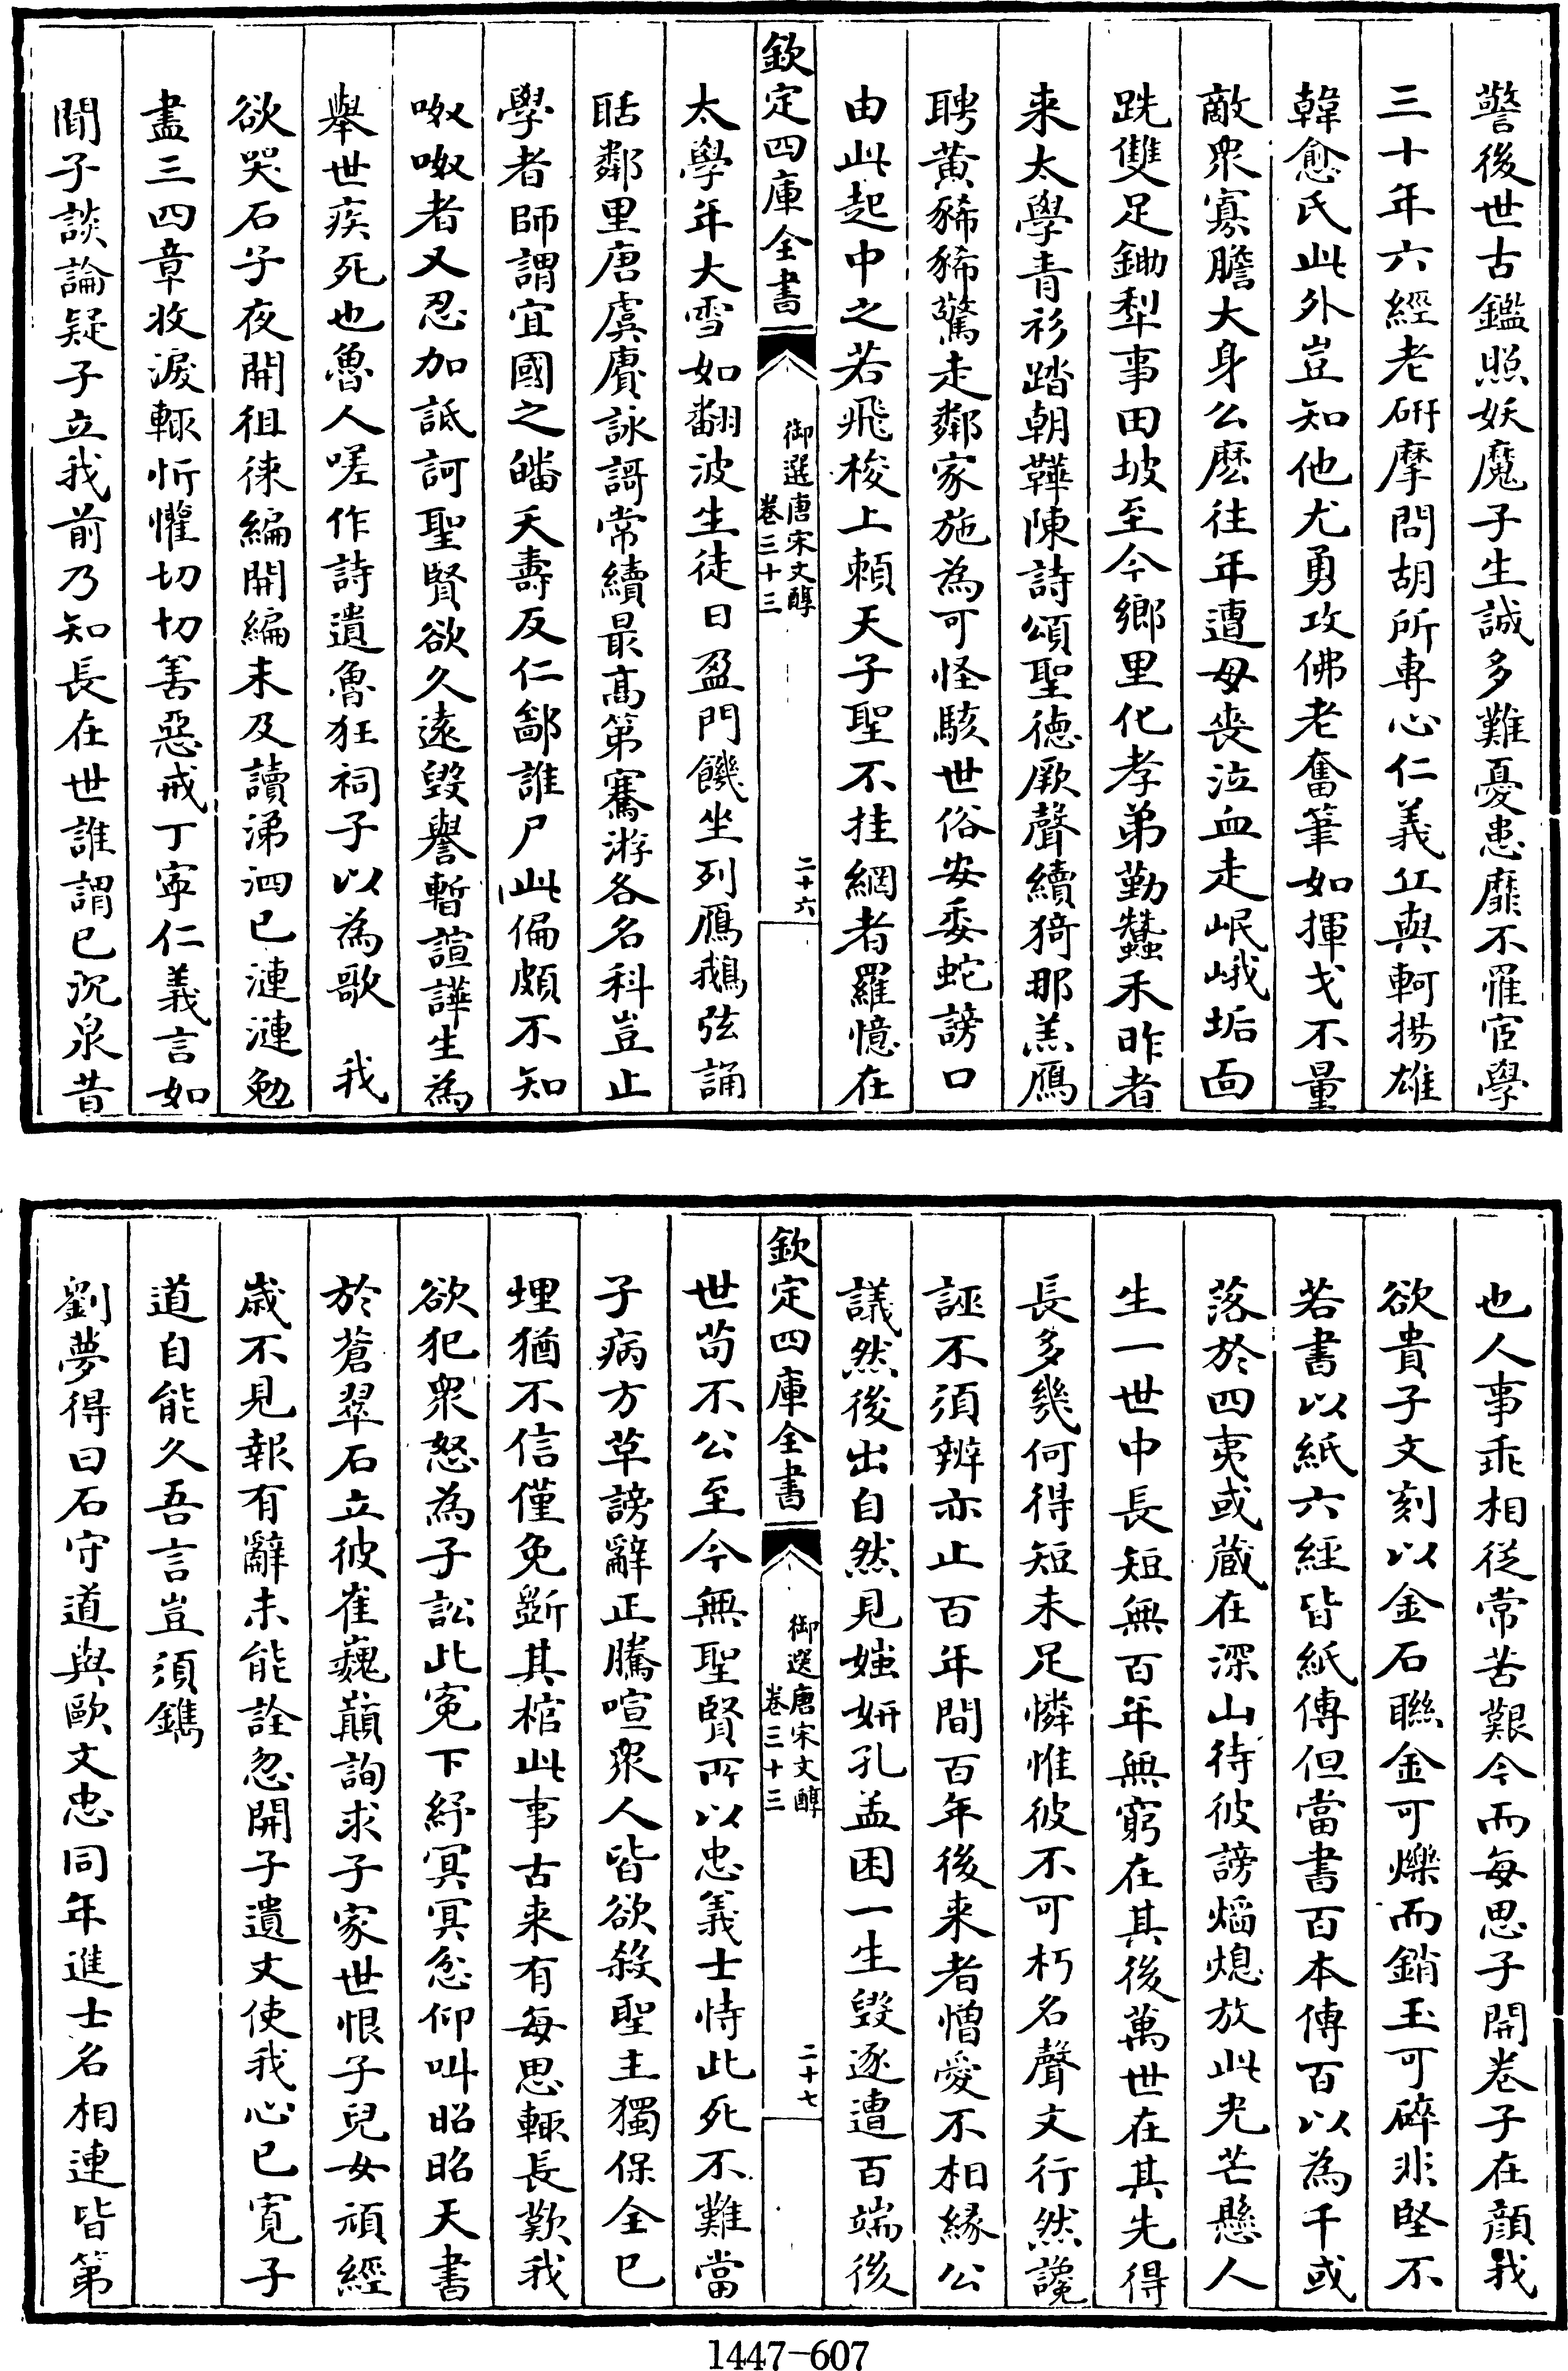 警後世古鑑照妖魔子生誠多難憂患靡不罹宦學
三十年六經老研摩問胡所專心仁義丘與軻揚雄
韓愈氏此外豈知他尤勇攻佛老奮筆如揮戈不量
敵衆寡膽大身么麽往年遭母喪泣血走岷峨垢面
跣雙足鋤犁事田坡至今鄉里化孝弟勤蠶禾昨者
来太學青衫踏朝鞾陳詩頌聖徳厥聲續猗那羔鴈
聘黄豨豨驚走鄰家施為可怪駭世俗安委蛇謗口
由此起中之若飛梭上賴天子聖不挂網者羅憶在
欽定四庫全書
御選唐宋文醇
卷三十三
二十六
太學年大雪如翻波生徒日盈門饑坐列鴈鵝弦誦
聒鄰里唐虞賡詠謌常續最高第騫游各名科豈止
學者師謂宜國之皤夭壽反仁鄙誰尸此偏頗不知
呶呶者又忍加詆訶聖賢欲久遠毁譽暫諠譁生為
舉世疾死也魯人嗟作詩遺魯狂祠子以為歌　我
欲哭石子夜開徂徕編開編未及讀涕泗已漣漣勉
盡三四章收淚輒忻懽切切善惡戒丁寕仁義言如
聞子談論疑子立我前乃知長在世誰謂已沉泉昔
也人事乖相従常苦艱今而每思子開卷子在顔我
欲貴子文刻以金石聯金可爍而銷玉可碎非堅不
若書以紙六經皆紙傳但當書百本傳百以為千或
落於四夷或蔵在深山待彼謗熖熄放此光芒懸人
生一世中長短無百年無窮在其後萬世在其先得
長多幾何得短未足憐惟彼不可朽名聲文行然讒
誣不須辨亦止百年間百年後来者憎愛不相緣公
議然後出自然見媸妍孔孟困一生毁逐遭百端後
欽定四庫全書
御選唐宋文醇
卷三十三
二十七
世苟不公至今無聖賢所以忠義士恃此死不難當
子病方草謗辭正騰喧衆人皆欲殺聖主獨保全已
埋猶不信僅免斵其棺此事古来有每思輒長歎我
欲犯衆怒為子訟此寃下紓冥冥忿仰叫昭昭天書
於蒼翠石立彼崔巍巔詢求子家世恨子兒女頑經
歳不見報有辭未能詮忽開子遺文使我心已寛子
道自能久吾言豈須鐫
劉夢得曰石守道與歐文忠同年進士名相連皆第
1447-607